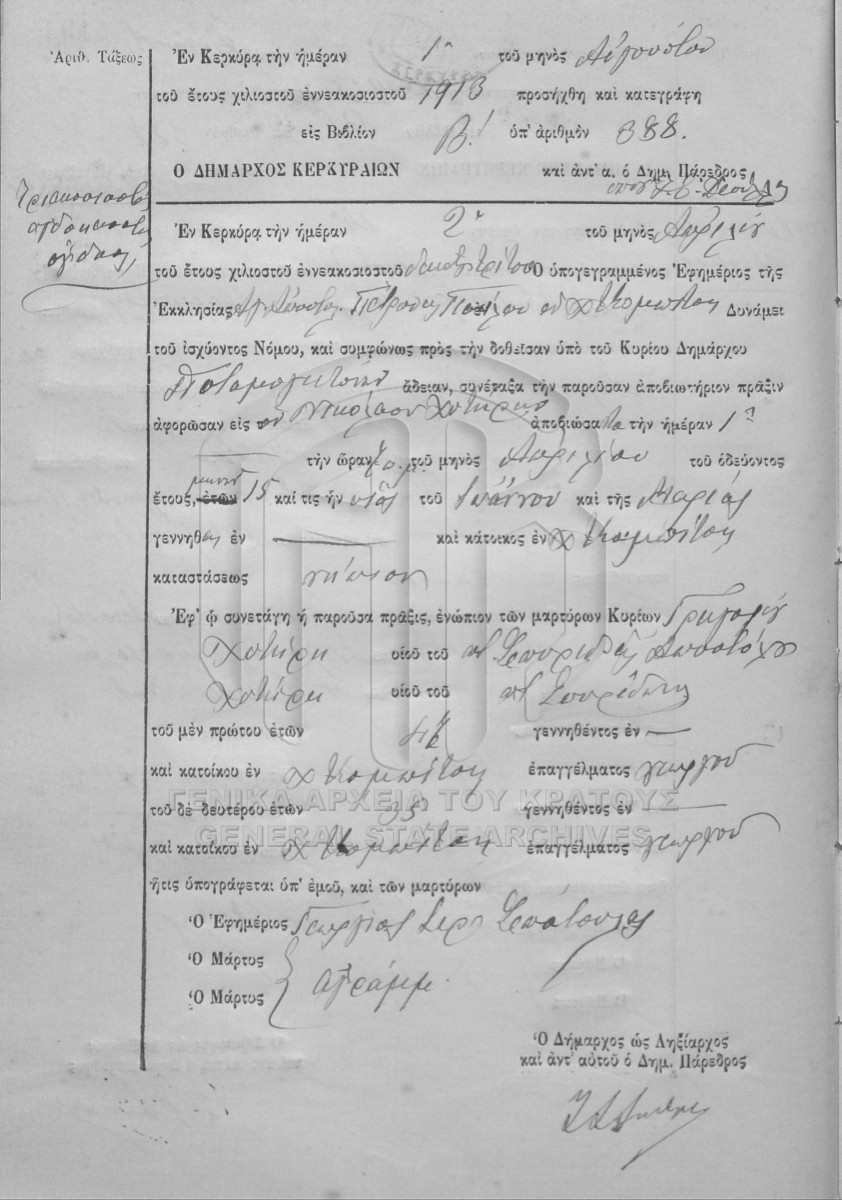 Ἀριθ. Τάξεως
Ἐν Κερκύρᾳ τὴν ἡμέραν 1η τοῦ μηνὸς Αὐγούστου
τοῦ ἔτους χιλιοστοῦ ἐννεακοσιοστοῦ 1913 προσήχθη καὶ κατεγράφη
εἰς Βιβλίον Β! ὑπ' ἀριθμὸν 388.
Ο ΔΗΜΑΡΧΟΣ ΚΕΡΚΥΡΑΙΩΝ καὶ ἀντ' α. ὁ Δημ. Πάρεδρος
Τριακοσιοστὸς
ὀγδοηκοστὸς
ὄγδοος
Ἐν Κερκύρᾳ τὴν ἡμέραν 2α τοῦ μηνὸς Ἀπριλίου
τοῦ ἔτους χιλιοστοῦ ἐννεακοσιοστοῦ δεκάτου τρίτου Ὁ ὑπογεγραμμένος Ἐφημέριος τῆς
Ἐκκλησίας Ἁγ. Ἀποστόλ. Πέτρου καὶ Παύλου Δυνάμει
τοῦ ἰσχύοντος Νόμου, καὶ συμφώνως πρὸς τὴν δοθεῖσαν ὑπὸ τοῦ Κυρίου Δημάρχου
Ποταμογειτόνων ἄδειαν, συνέταξα τὴν παροῦσαν ἀποβιωτήριον πρᾶξιν
ἀφορῶσαν εἰς τὸν Νικόλαον Χυτήρην ἀποβιώσαντα τὴν ἡμέραν 1η
τὴν ὥραν π.μ. τοῦ μηνὸς Ἀπριλίου τοῦ ὁδεύοντος
μηνῶν
ἔτους, ἐτῶν 15 καί τις ἦν υἱὸς τοῦ Ἰωάννου καὶ τῆς Μαρίας
γεννηθεὶς ἐν — καὶ κάτοικος ἐν χ Κομπίτσι
καταστάσεως νήπιον
Ἐφ' ᾧ συνετάγη ἡ παροῦσα πρᾶξις, ἐνώπιον τῶν μαρτύρων Κυρίων Γρηγορίου
Χυτήρη υἱοῦ τοῦ Σπυρίδ. καὶ Ἀποστόλου
Χυτήρη υἱοῦ τοῦ Σπυρίδωνος
τοῦ μὲν πρώτου ἐτῶν γεννηθέντος ἐν —
καὶ κατοίκου ἐν χ Κομπίτσι ἐπαγγέλματος γεωργοῦ
τοῦ δὲ δευτέρου ἐτῶν 35 γεννηθέντος ἐν —
καὶ κατοίκου ἐν χ Κομπίτσι ἐπαγγέλματος γεωργοῦ
ἥτις ὑπογράφεται ὑπ' ἐμοῦ, καὶ τῶν μαρτύρων
Ὁ Ἐφημέριος Γεώργιος Ἱερ
Ὁ Μάρτυς
Ὁ Μάρτυς ἀγράμμ.
Ὁ Δήμαρχος ὡς Ληξίαρχος
καὶ ἀντ' αὐτοῦ ὁ Δημ. Πάρεδρος
ΓΕΝΙΚΑ ΑΡΧΕΙΑ ΤΟΥ ΚΡΑΤΟΥΣ
GENERAL STATE ARCHIVES